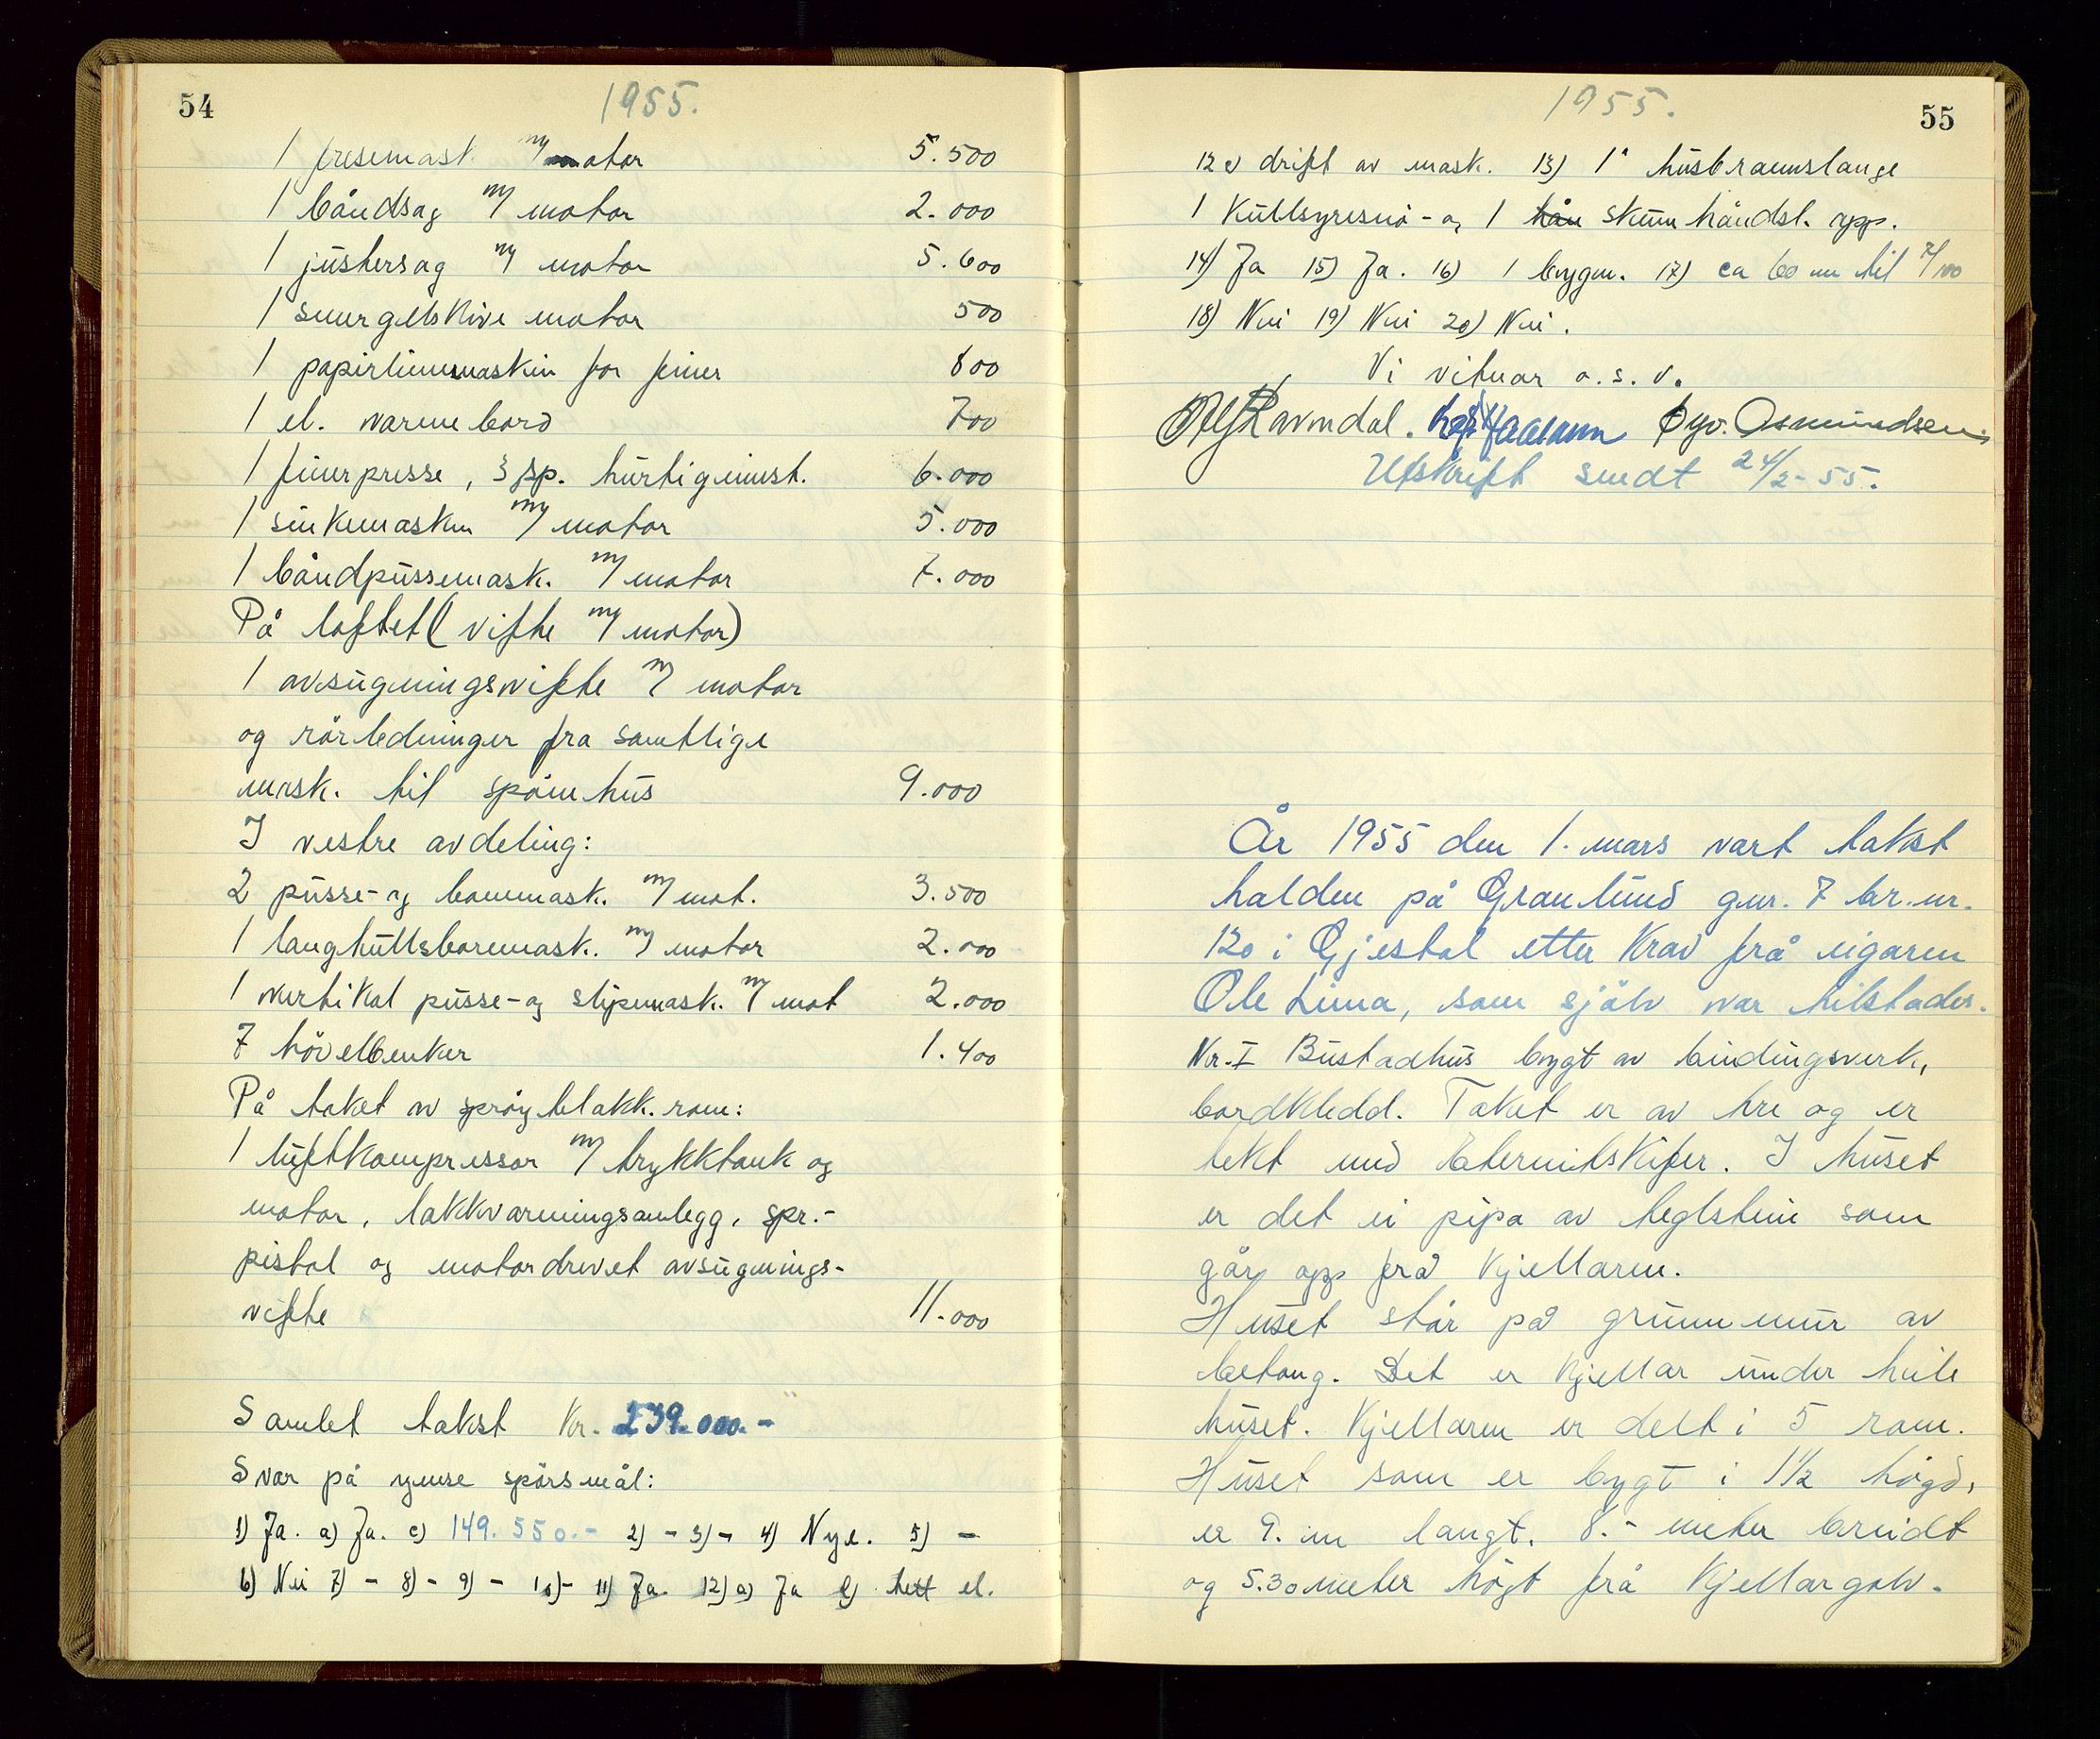 54
1955.
1 fresemask. m/ motor 5.500
1 båndsag m/ motor 2.000
1 justersag m/ motor 5.600
1 smergelskive motor 500
1 papirlimmaskin for finer 800
1 el. varmebord 700
1 finerpresse, 3 sp. hurtiginnst. 6.000
1 sinkemaskin m/ motor 5.000
1 båndpussemask. m/ motor 7.000
På loftet (vifte m/ motor)
1 avsugningsvifte m/ motor
og rörledninger fra samtlige
mask. til spönhus 9.000
I vestre avdeling:
2 pusse- og bormask. m/ mot. 3.500
1 langhullsboremask. m/ motor 2.000
1 vertikal pusse- og slipemask. m/ mot 2.000
7 hövelbenker 1.400
På taket av spröytelakk. rom:
1 luftkompressor m/ trykktank og
motor, lakkvarmingsanlegg, spr.-
pistol og motordrevet avsugnings-
vifte 11.000
Samlet takst kr. 239.000.-
Svar på ymse spörsmål:
1) Ja. a) Ja. c) 149.550.- 2) - 3) - 4) Nye. 5) -
6) Nei 7) - 8) - 9) - 10) - 11) Ja. 12) a) Ja b) lett el.
1955.
55
12 c) drift av mask. 13) 1" husbrannslange
1 kullsyresnö- og 1 hån skum håndsl. app.
14) Ja 15) Ja. 16) 1 bygn. 17) ca 60 m til
18) Nei 19) Nei 20) Nei.
Vi vitnar o.s.v.
Ravndal. Osmundsen
Utskrift sendt 24/2-55.
År 1955 den 1. mars vart takst
halden på Granlund gnr. 7 br.nr.
120 i Gjestal etter krav frå eigaren
Ole Lima, som sjölv var tilstades.
Nr. I Bustadhus bygt av bindingsverk,
bordkledd. Taket er av tre og er
tekt med Eternitskifer. I huset
er det ei pipa av teglstein som
går opp frå kjellaren.
Huset står på grunnmur av
betong. Det er kjellar under heile
huset. Kjellaren er delt i 5 rom.
Huset som er bygt i 1 1/2 högd,
er 9. m langt. 8.- meter breidt
og 5.30 meter högt frå kjellargolv.